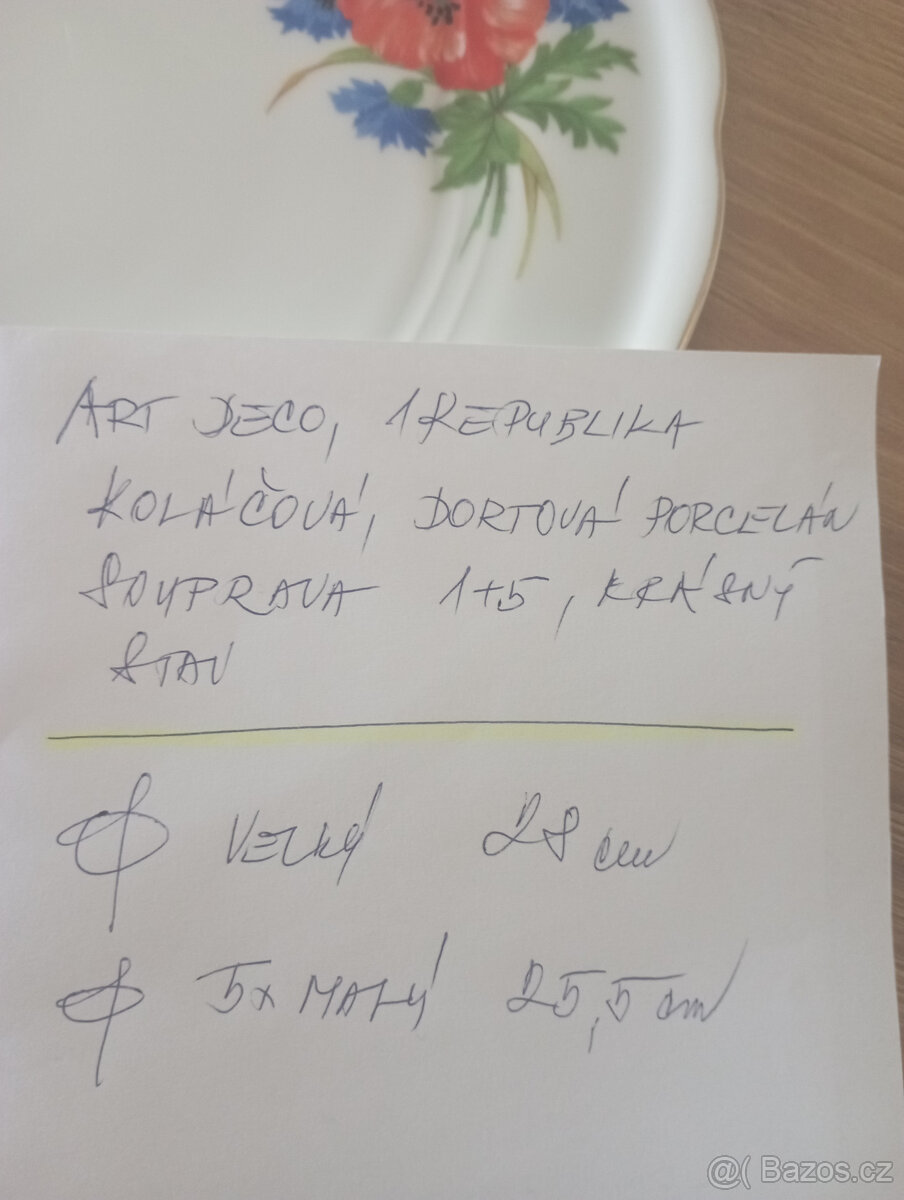 ART DECO, 1 REPUBLIKA
KOLÁČOVÁ, DORTOVÁ PORCELÁN
SOUPRAVA 1+5, KRÁSNÝ
STAV
⌀ VELKÝ 28 cm
⌀ 5x MALÝ 25,5 cm
@( Bazos.cz